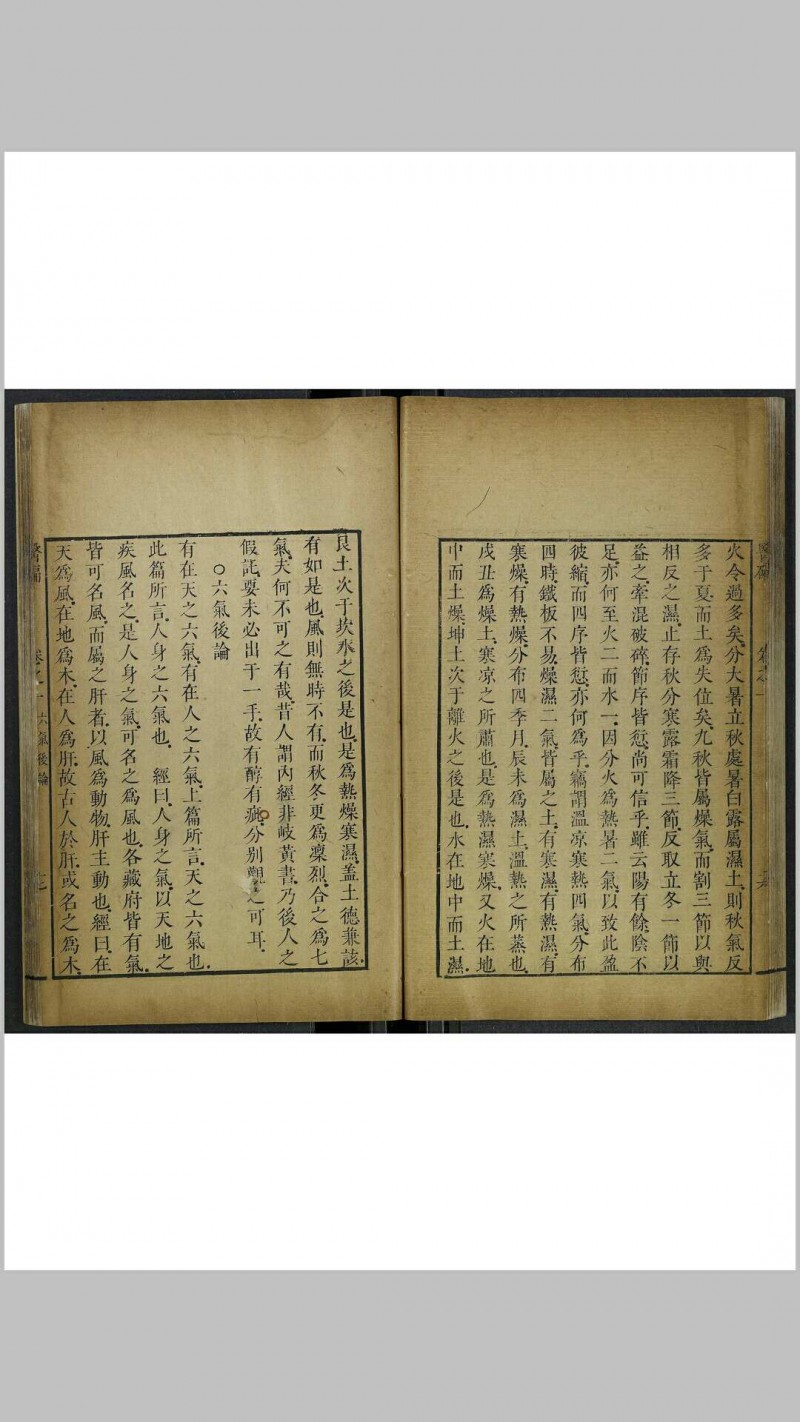 火令過多矣分大暑立秋處暑白露屬濕土則秋氣反
多于夏而土爲失位矣九秋皆屬燥氣而割三節以與
相反之濕止存秋分寒露霜降三節反取立冬一節以
益之牽混破碎節序皆愆尚可信乎雖云陽有餘陰不
足亦何至火二而水一因分火爲熱暑二氣以致此盈
彼縮而四序皆愆亦何爲乎竊謂溫凉寒熱四氣分布
四時鐵板不易燥濕二氣皆屬之土有寒濕有熱濕有
寒燥有熱燥分布四季月辰未爲濕土溫熱之所蒸也
戌丑爲燥土寒凉之所肅也是爲熱濕寒燥又火在地
中而土燥坤土次于離火之後是也水在地中而土濕
艮土次于坎水之後是也是爲熱燥寒濕盖土德兼該
有如是也風則無時不有而秋冬更爲凜烈合之爲七
氣夫何不可之有哉昔人謂內經非岐黃書乃後人之
假託要未必出于一手故有醇有疵分別觀之可耳
○六氣後論
有在天之六氣有在人之六氣上篇所言天之六氣也
此篇所言人身之六氣也 經曰人身之氣以天地之
疾風名之是人身之氣可名之爲風也各藏府皆有氣
皆可名風而屬之肝者以風爲動物肝主動也經曰在
天爲風在地爲木在人爲肝故古人於肝或名之爲木
卷之一 六氣後論